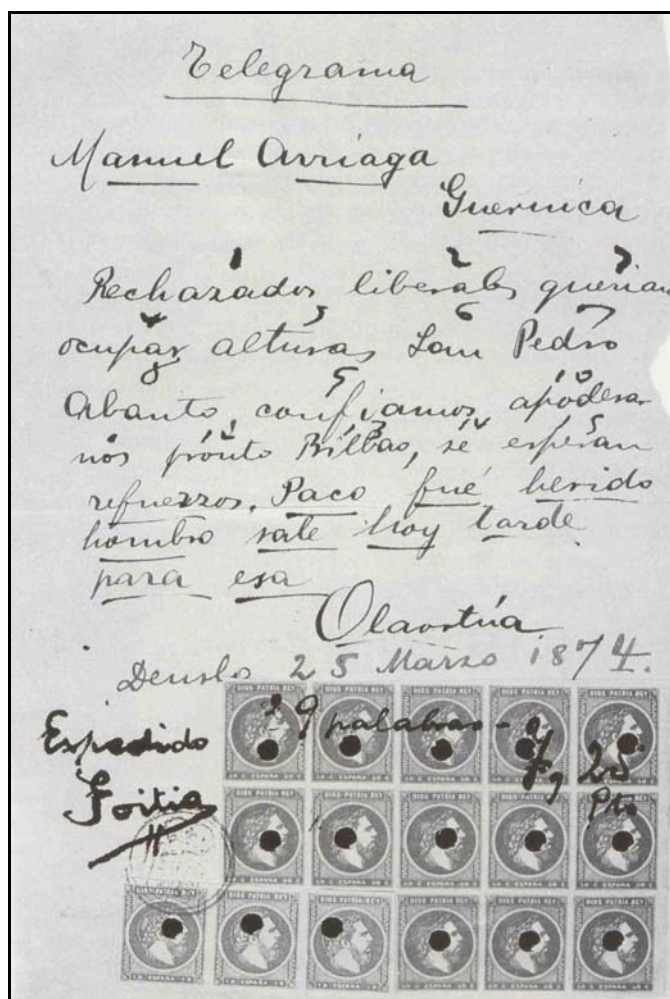 Telegrama
Manuel Arriaga
Guernica
1 2 3
Rechazados liberales querian
4 5 6 7
ocupar alturas San Pedro
8 9 10
Abanto, confiamos apoderar
nos pronto Bilbao, se esperan
refuerzos. Paco fué herido
hombro sale hoy tarde
para esa
Olaortúa
Deusto 25 Marzo 1874.
29 palabras -
Espedido
Goitia
7,25
Pts
DIOS PATRIA REY
ESPAÑA